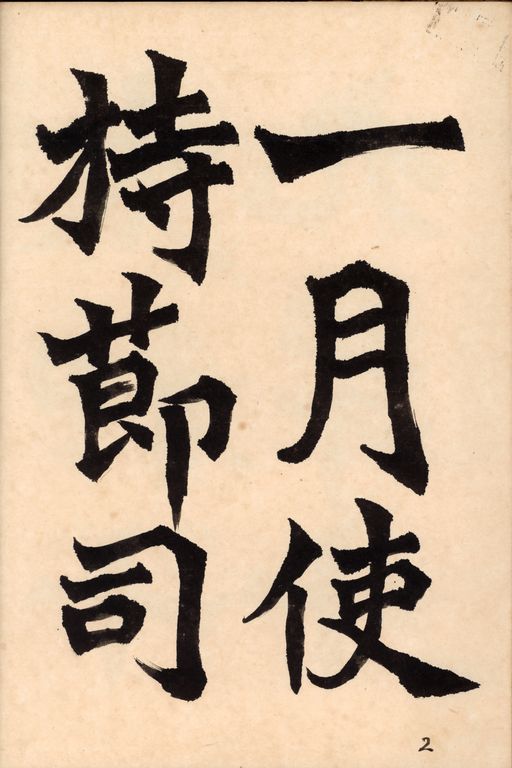 一月使
持莭司
2